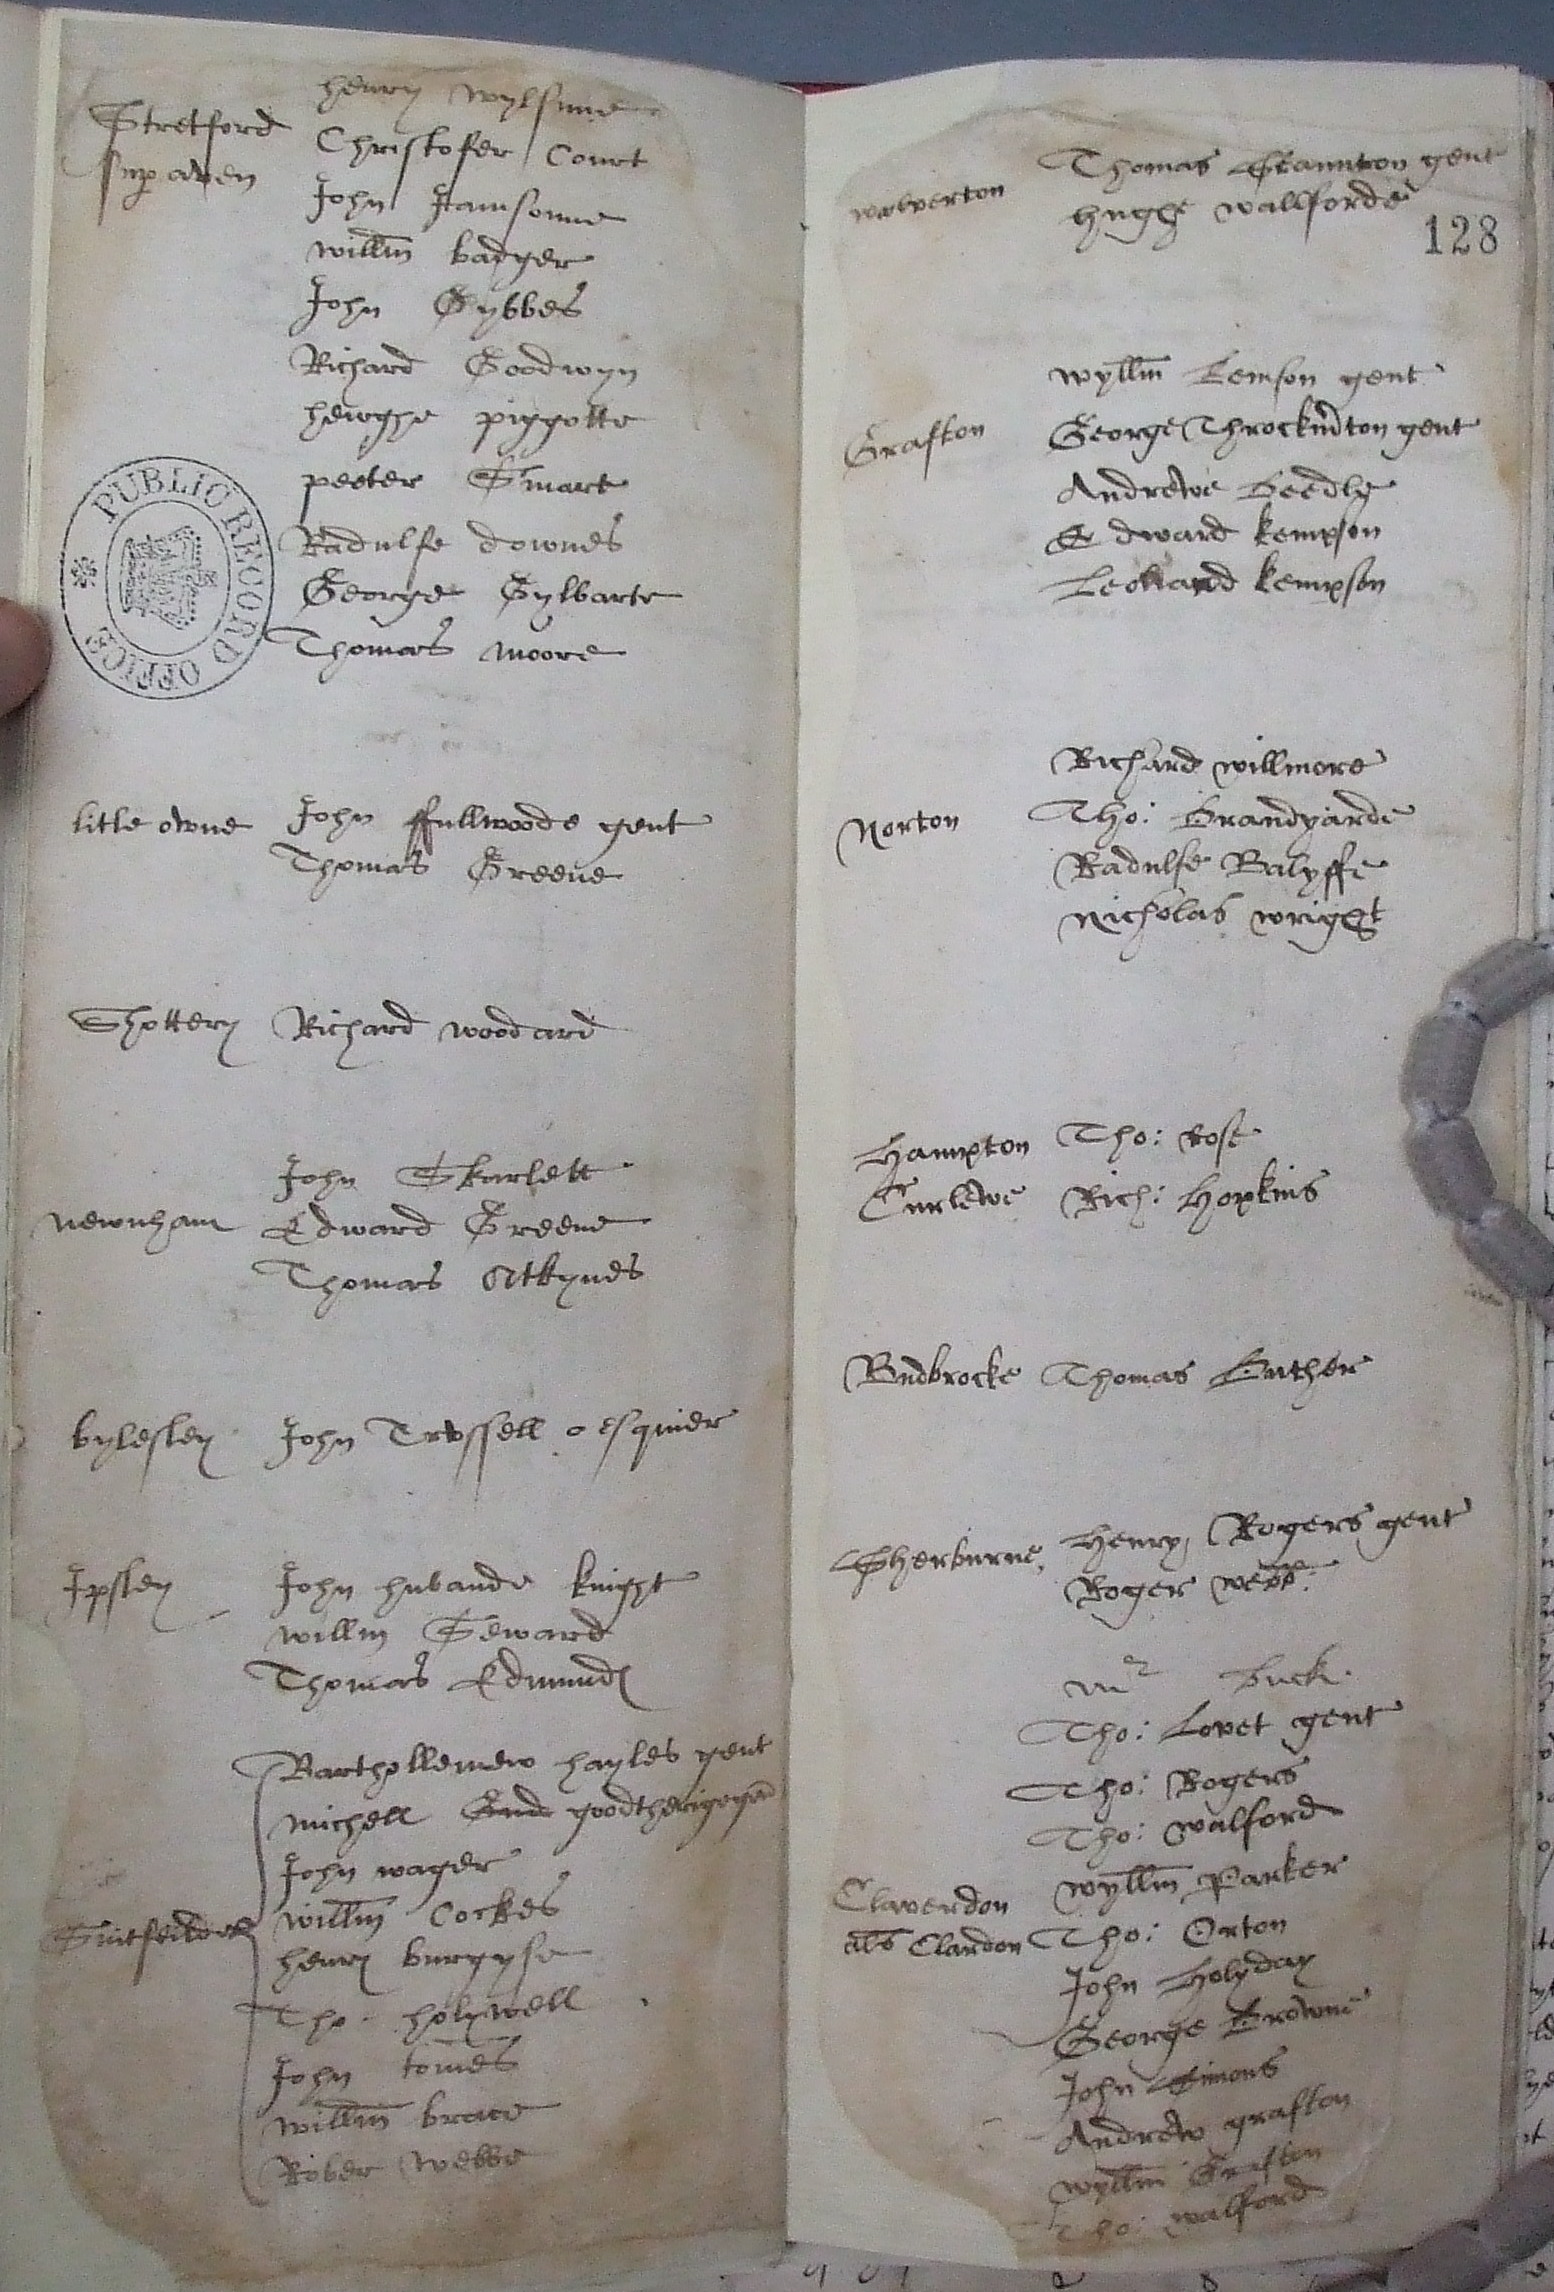 henry wylsune
Stretford Christofer Court
sup aven John Jamsonne
willm badger
John Gybbes
Richard Goodwyn
hewghe piggotte
peeter Smart
Radulfe downes
George Gylbarte
Thomas moore
PUBLIC RECORD OFFICE
litle owne John ffullwoode gent
Thomas Greene
Shottery Richard woodard
John Skarlett
newnham Edward Greene
Thomas Atkynes
bylesley John Trvssell esquier
Ipsley John hubande knight
willm Seward
Thomas Edmunds
Barthollemew hayles gent
michell goodtherige gen
John wager
willm Cockes
Snitfeilde henry burgyse
Tho. holywell
John tomes
willm brace
Rober Webbe
wolverton Thomas Staunton gent
hughe wallforde
128
wyllm Lemson gent
Grafton George Throckmton gent
Andrewe Beedle
Edward kempson
Leonard kempson
Richard willmore
Norton Tho: Brandyarde
Radulfe Balyffe
Nicholas wright
Hampton Tho: Rose
Curlewe Rich: Hopkins
Budbrocke Thomas Luther
Sherburne, Henry Rogers gent
Roger webb:
mr buck.
Tho: Lovet gent
Tho: Rogers
Tho: walford
Claverdon wyllm Parker
als Clardon Tho: Orton
John Holyday
George Browne
John Simons
Andrew grafton
wyllm Grafton
Tho: walford